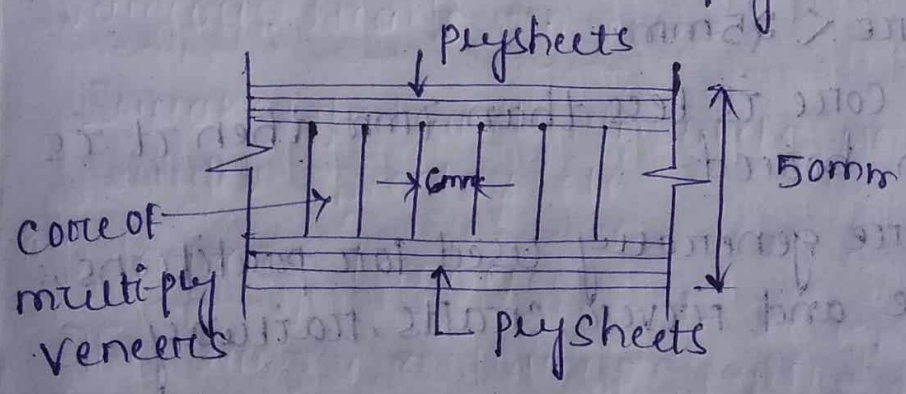 plysheets
6mm
50mm
core of
multi-ply
veneers
plysheets